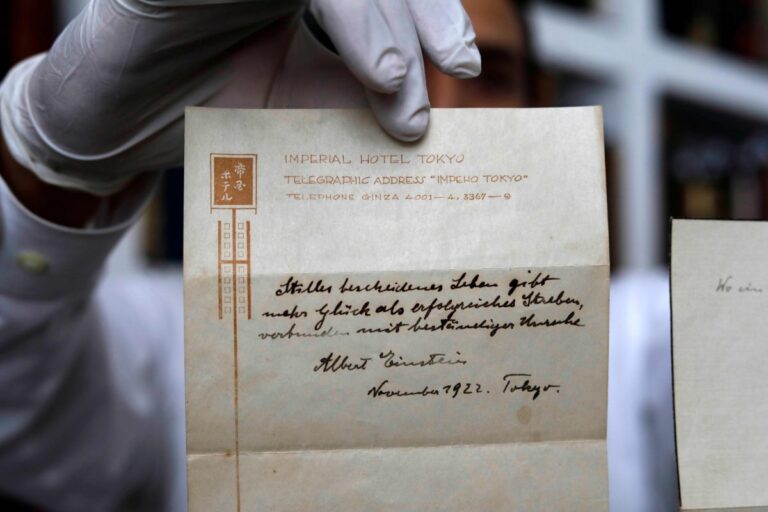 帝国
ホテル
IMPERIAL HOTEL TOKYO
TELEGRAPHIC ADDRESS "IMPEHO TOKYO"
TELEPHONE GINZA 4001—4, 3367—9
Stilles bescheidenes Leben gibt
mehr Glück als erfolgreiches Streben,
verbunden mit beständiger Unruhe
Albert Einstein
November 1922. Tokyo.
Wo ein